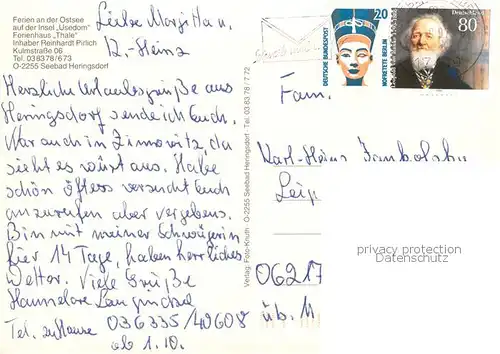 Ferien an der Ostsee
auf der Insel „Usedom"
Ferienhaus „Thale"
Inhaber Reinhardt Pirlich
Kulmstraße 06
Tel. 03 8378/673
O-2255 Seebad Heringsdorf
Liebe Margitta u.
K.-Heinz
Herzliche Urlaubsgrüße aus
Heringsdorf sende ich Euch.
War auch in Zinnowitz, da
sieht es wüst aus. Habe
schon öfters versucht Euch
anzurufen aber vergebens.
Bin mit meiner Schwägerin
hier 14 Tage, haben herrliches
Wetter. Viele Grüße
Hannelore
Tel. zuHause 036335/40608
ab 1.10.
Verlag: Foto-Knuth · O-2255 Seebad Heringsdorf · Tel. 03 83 78 / 7 72
DEUTSCHE BUNDESPOST
20
NOFRETETE BERLIN
80
Fam.
Karl-Heinz
Leip
06217
üb. M
privacy protection
Datenschutz